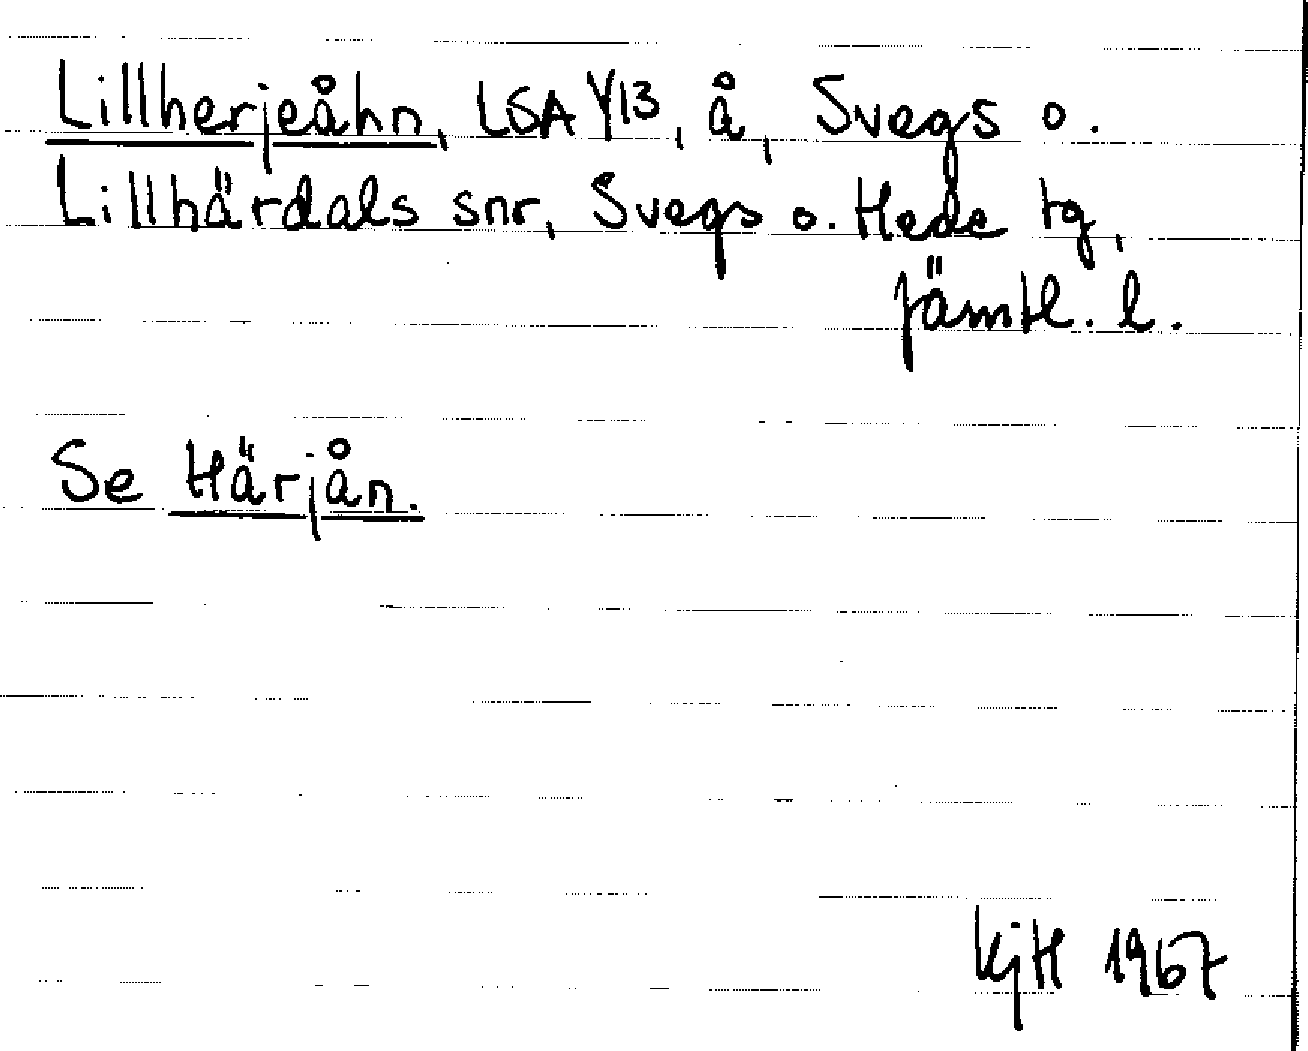 Lillherjeåhn, LSA Y13, å, Svegs o.
Lillhärdals snr, Svegs o. Hede tg,
Jämtl. l.
Se Härjån.
KjH 1967